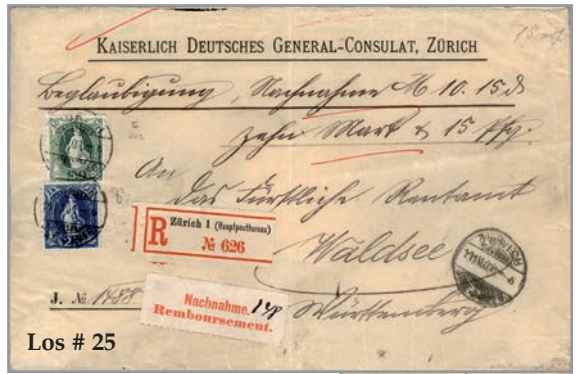 KAISERLICH DEUTSCHES GENERAL-CONSULAT, ZÜRICH
Beglaubigung, Nachnahme M 10. 15 d
zehn Mark & 15 Pfg.
An
das Fürstliche Rentamt
Waldsee
Württemberg
R Zürich 1 (Hauptpostbureau)
№ 626
J. № 1488
Nachnahme.
Remboursement.
Los # 25